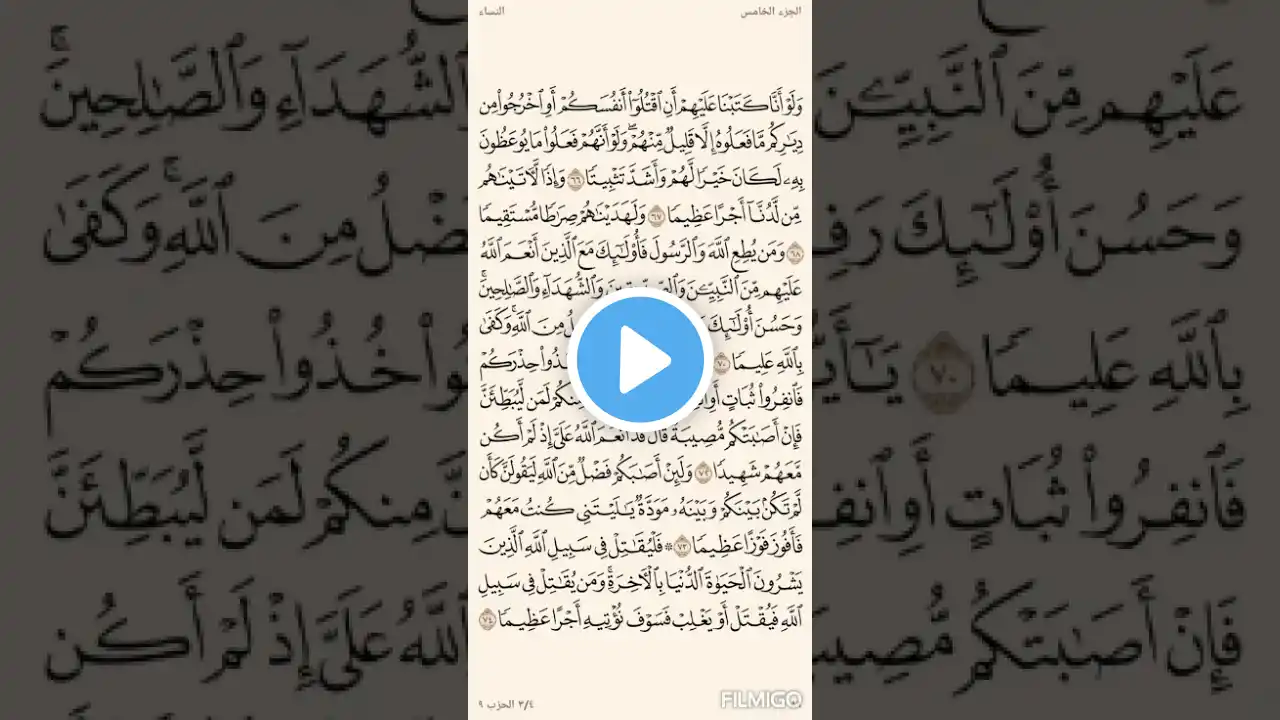 الجزء الخامس
النساء
وَلَوْ أَنَّا كَتَبْنَا عَلَيْهِمْ أَنِ ٱقْتُلُوٓا۟ أَنفُسَكُمْ أَوِ ٱخْرُجُوا۟ مِن
دِيَٰرِكُم مَّا فَعَلُوهُ إِلَّا قَلِيلٌ مِّنْهُمْ ۖ وَلَوْ أَنَّهُمْ فَعَلُوا۟ مَا يُوعَظُونَ
بِهِۦ لَكَانَ خَيْرًا لَّهُمْ وَأَشَدَّ تَثْبِيتًا ٦٦ وَإِذًا لَّءَاتَيْنَٰهُم
مِّن لَّدُنَّآ أَجْرًا عَظِيمًا ٦٧ وَلَهَدَيْنَٰهُمْ صِرَٰطًا مُّسْتَقِيمًا
٦٨ وَمَن يُطِعِ ٱللَّهَ وَٱلرَّسُولَ فَأُو۟لَٰٓئِكَ مَعَ ٱلَّذِينَ أَنْعَمَ ٱللَّهُ
عَلَيْهِم مِّنَ ٱلنَّبِيِّۦنَ وَٱلصِّدِّيقِينَ وَٱلشُّهَدَآءِ وَٱلصَّٰلِحِينَ ۚ
وَحَسُنَ أُو۟لَٰٓئِكَ مِنَ ٱللَّهِ ۚ وَكَفَىٰ
بِٱللَّهِ عَلِيمًا ٧٠ حِذْرَكُمْ
فَٱنفِرُوا۟ ثُبَاتٍ لَمَن لَّيُبَطِّئَنَّ
فَإِنْ أَصَٰبَتْكُم مُّصِيبَةٌ قَالَ قَدْ أَنْعَمَ ٱللَّهُ عَلَىَّ إِذْ لَمْ أَكُن
مَّعَهُمْ شَهِيدًا ٧٢ وَلَئِنْ أَصَٰبَكُمْ فَضْلٌ مِّنَ ٱللَّهِ لَيَقُولَنَّ كَأَن
لَّمْ تَكُنۢ بَيْنَكُمْ وَبَيْنَهُۥ مَوَدَّةٌ يَٰلَيْتَنِى كُنتُ مَعَهُمْ
فَأَفُوزَ فَوْزًا عَظِيمًا ٧٣ ۞ فَلْيُقَٰتِلْ فِى سَبِيلِ ٱللَّهِ ٱلَّذِينَ
يَشْرُونَ ٱلْحَيَوٰةَ ٱلدُّنْيَا بِٱلْءَاخِرَةِ ۚ وَمَن يُقَٰتِلْ فِى سَبِيلِ
ٱللَّهِ فَيُقْتَلْ أَوْ يَغْلِبْ فَسَوْفَ نُؤْتِيهِ أَجْرًا عَظِيمًا ٧٤
٣/٤ الحزب ٩
FILMIGO